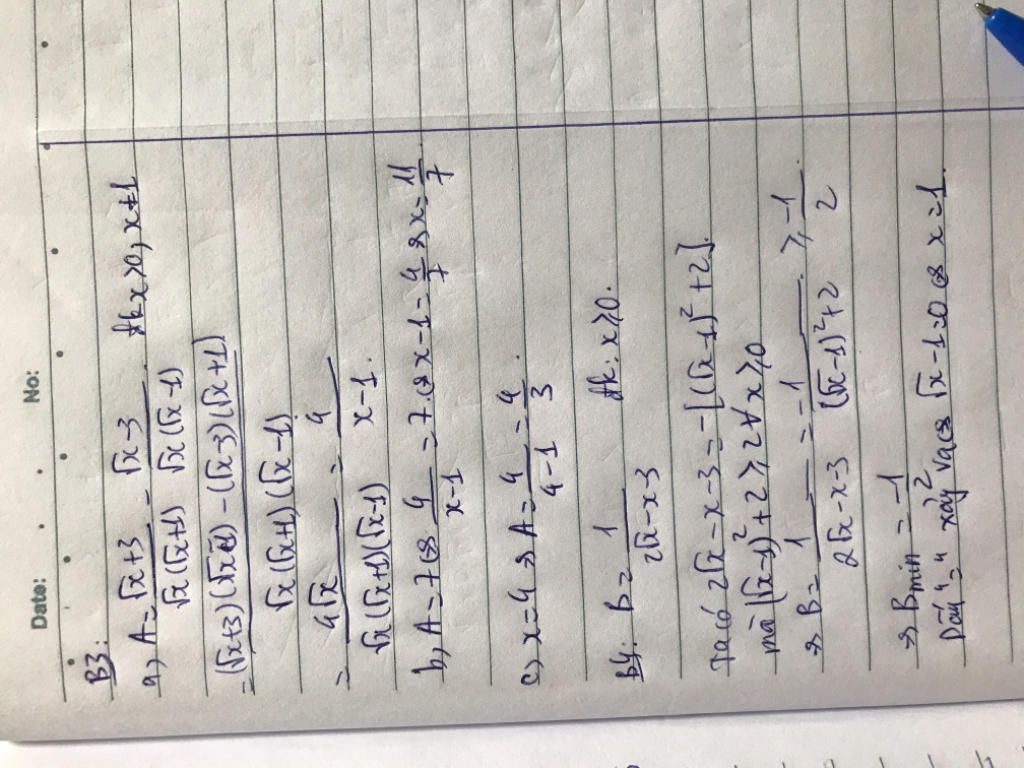 Date: No:
B3:
a, A = √x+3 / √x(√x+1) − √x−3 / √x(√x−1). đk x>0, x≠1
= (√x+3)(√x−1) − (√x−3)(√x+1) / √x(√x+1)(√x−1)
= 4√x / √x(√x+1)(√x−1) = 4 / x−1.
b, A = 7 ⇔ 4 / x−1 = 7. ⇔ x−1 = 4/7 ⇔ x = 11/7.
c, x=4 ⇒ A = 4 / 4−1 = 4/3.
B4: B = 1 / 2√x−x−3 đk: x⩾0.
Ta có 2√x−x−3 = −[(√x−1)²+2].
mà (√x−1)²+2 ⩾ 2 ∀ x⩾0
⇒ B = 1 / 2√x−x−3 = −1 / (√x−1)²+2 ⩾ −1/2.
⇒ Bmin = −1/2
Dấu "=" xảy ra ⇔ √x−1=0 ⇔ x=1.